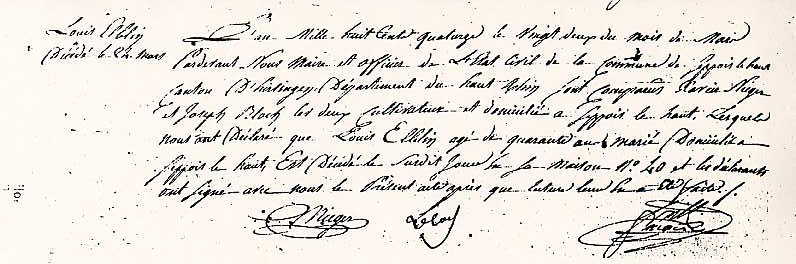 Louis Elblin
Décédé le 22 mars
L'an Mille huit Cent quatorze le Vingt deux du mois de Mars
Pardevant Nous Maire et officier de L'Etat Civil de la Commune de Seppois le haut
Canton D'hirsingen, Département du haut Rhin sont Comparus Xavier
et Joseph Bloch les deux Cultivateur et domicilié a Seppois le haut, Lesquels
nous ont Déclaré que Louis Elblin agé de quarante ans marié Domicilié a
Seppois le haut, Est Décédé le Susdit Jour en Sa Maison N° 40 et les déclarants
ont signé avec nous le Présent acte après que lecture leur en a été faite